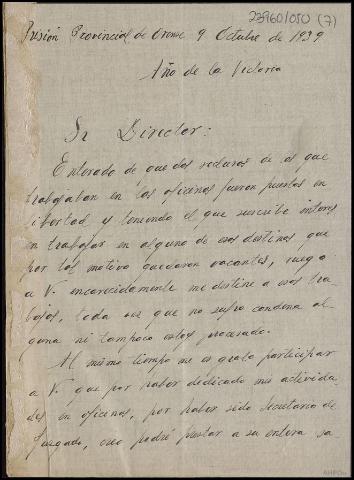 23960/050 (7)
Prisión Provincial de Orense 9 Octubre de 1939
Año de la Victoria
Sr Director:
Enterado de que dos reclusos de los que
trabajaban en las oficinas fueron puestos en
libertad y teniendo el que suscribe interes
en trabajar en alguno de esos destinos que
por tal motivo quedaron vacantes, ruego
a V. encarecidamente me destine a esos tra
bajos, toda vez que no sufro condena al
guna ni tampoco estoy procesado.
Al mismo tiempo me es grato participar
a V. que por haber dedicado mis activida
des en oficinas, por haber sido Secretario de
Juzgado, creo podré prestar a su entera sa-
AHPOu